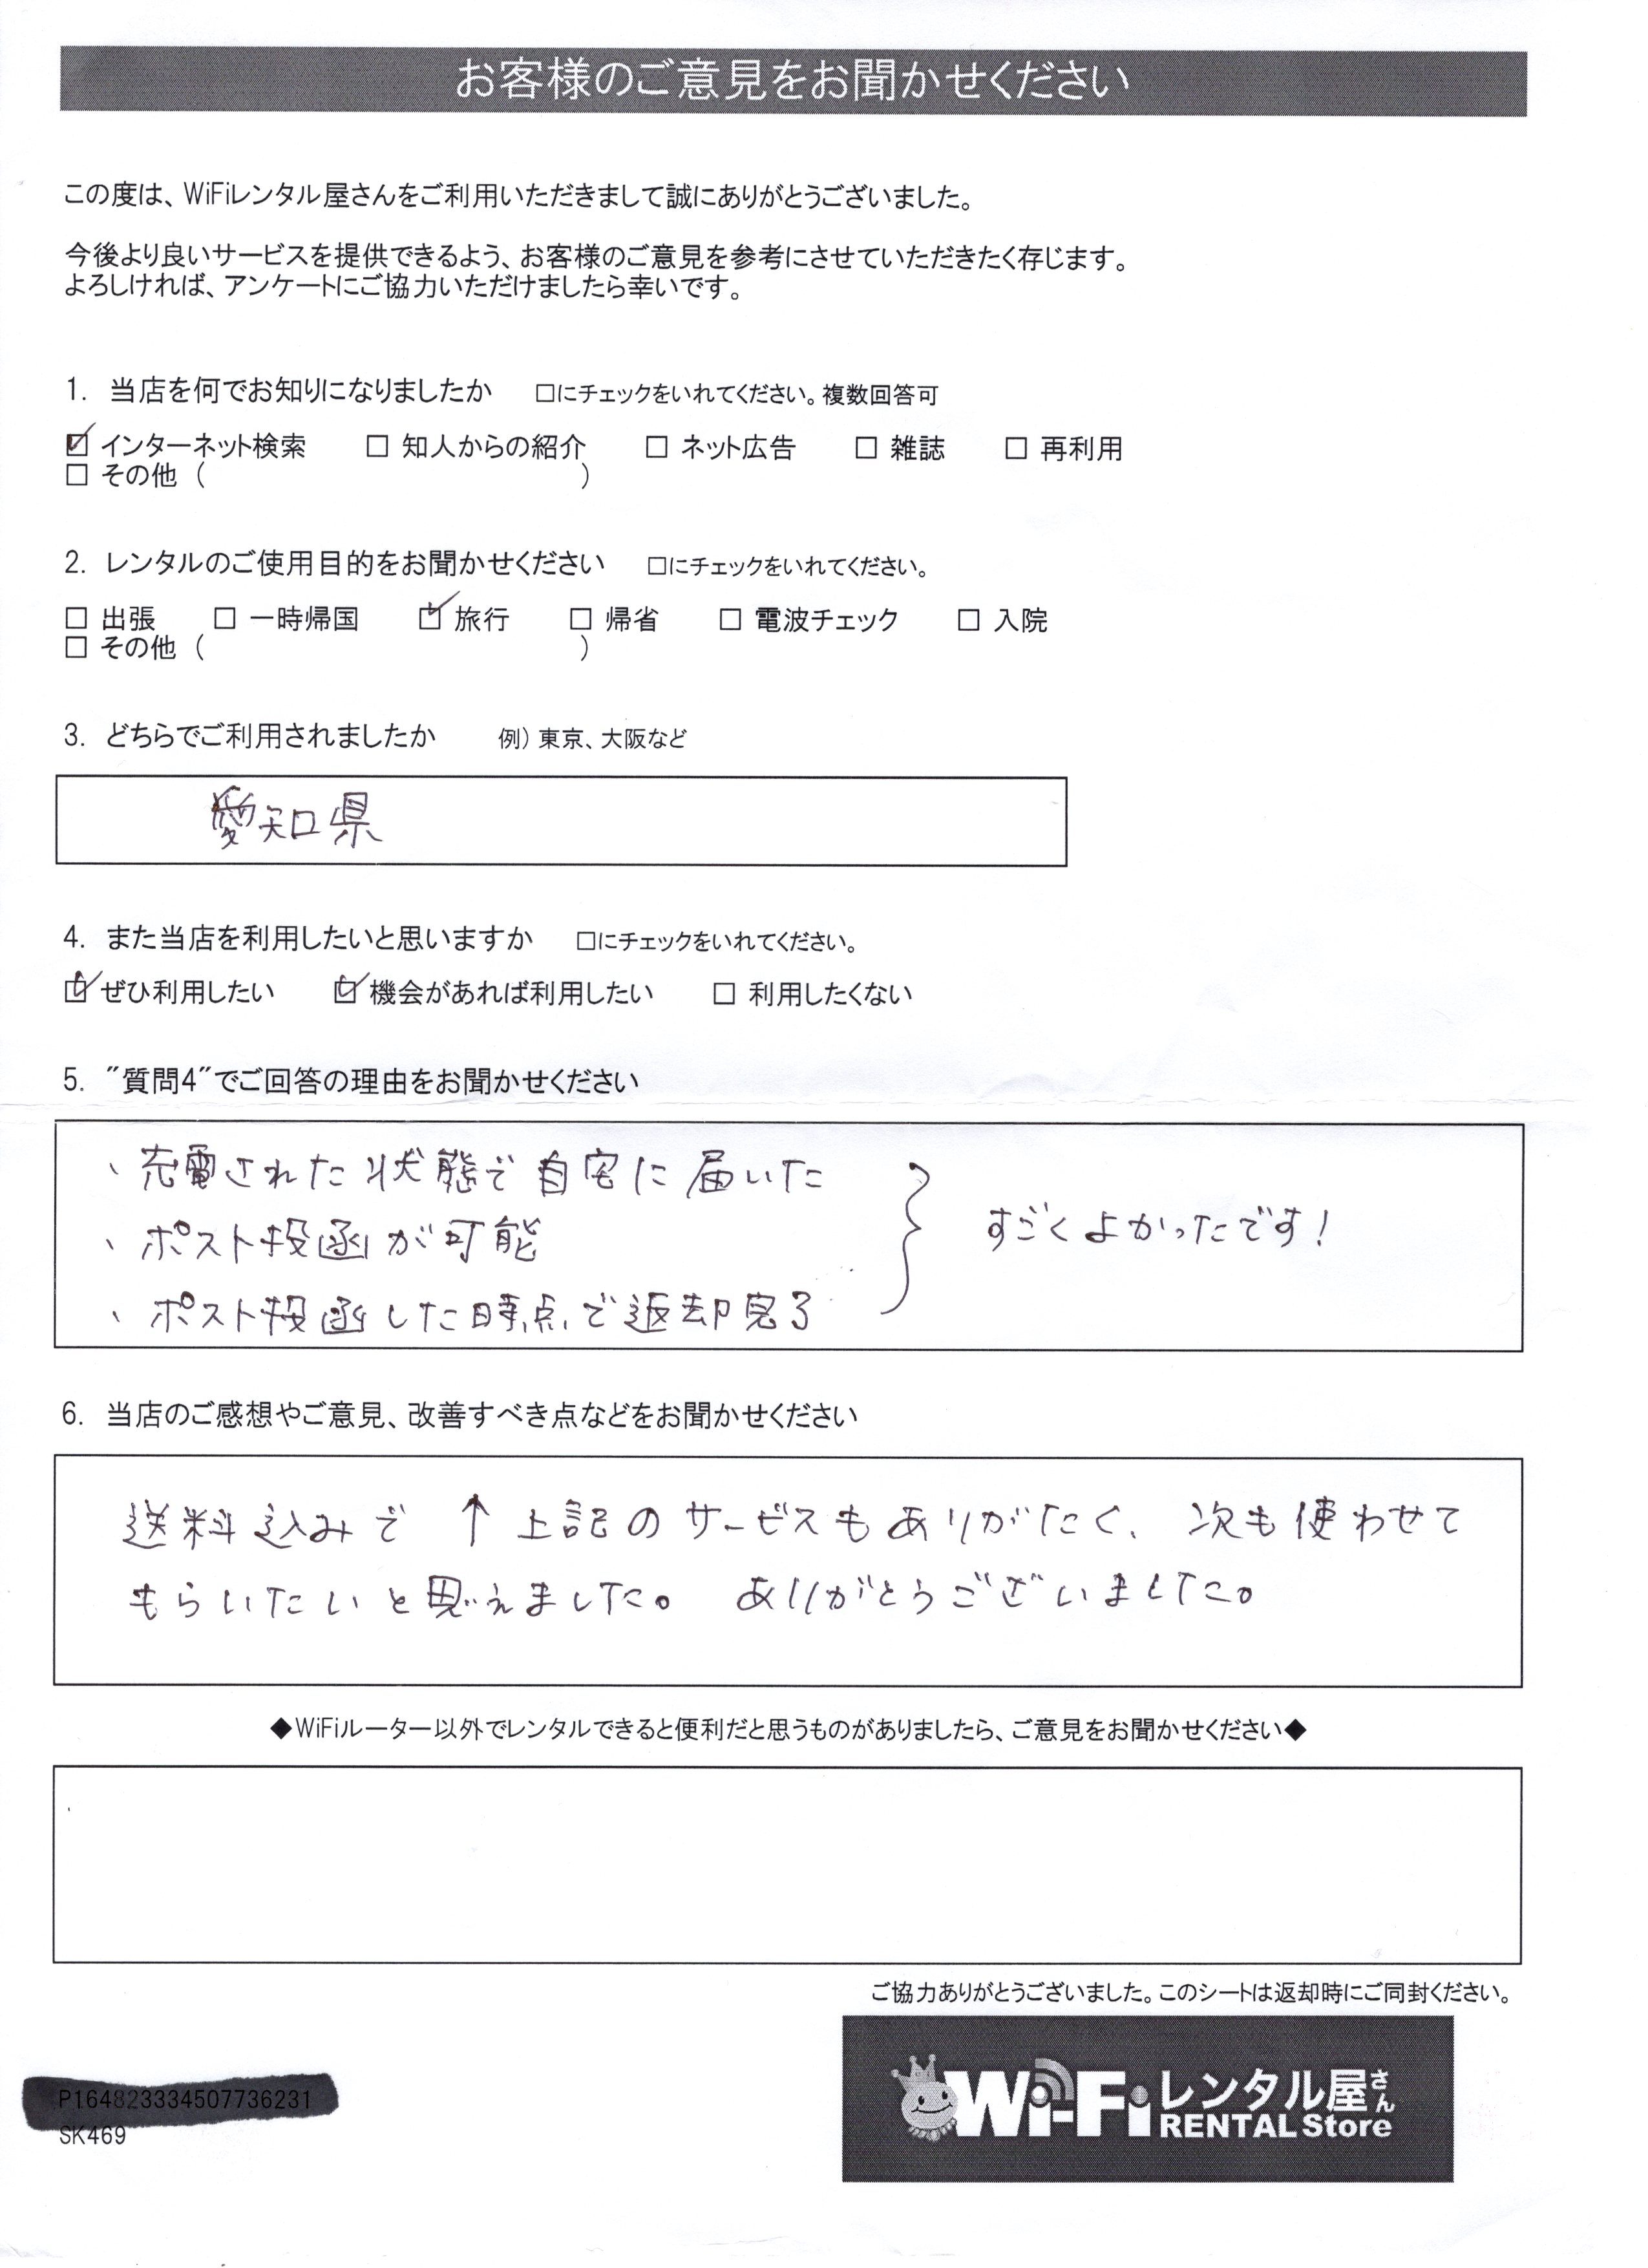 お客様のご意見をお聞かせください
この度は、WiFiレンタル屋さんをご利用いただきまして誠にありがとうございました。
今後より良いサービスを提供できるよう、お客様のご意見を参考にさせていただきたく存じます。
よろしければ、アンケートにご協力いただけましたら幸いです。
1. 当店を何でお知りになりましたか □にチェックをいれてください。複数回答可
☑ インターネット検索 □ 知人からの紹介 □ ネット広告 □ 雑誌 □ 再利用
□ その他 ( )
2. レンタルのご使用目的をお聞かせください □にチェックをいれてください。
□ 出張 □ 一時帰国 ☑ 旅行 □ 帰省 □ 電波チェック □ 入院
□ その他 ( )
3. どちらでご利用されましたか 例) 東京、大阪など
愛知県
4. また当店を利用したいと思いますか □にチェックをいれてください。
☑ ぜひ利用したい ☑ 機会があれば利用したい □ 利用したくない
5. "質問4"でご回答の理由をお聞かせください
、充電された状態で自宅に届いた
、ポスト投函が可能
、ポスト投函した時点で返却完了
すごくよかったです!
6. 当店のご感想やご意見、改善すべき点などをお聞かせください
送料込みで ↑ 上記のサービスもありがたく、次も使わせて
もらいたいと思えました。ありがとうございました。
◆WiFiルーター以外でレンタルできると便利だと思うものがありましたら、ご意見をお聞かせください◆
ご協力ありがとうございました。このシートは返却時にご同封ください。
P164823334507736231
SK469
Wi-Fiレンタル屋さん
RENTAL Store